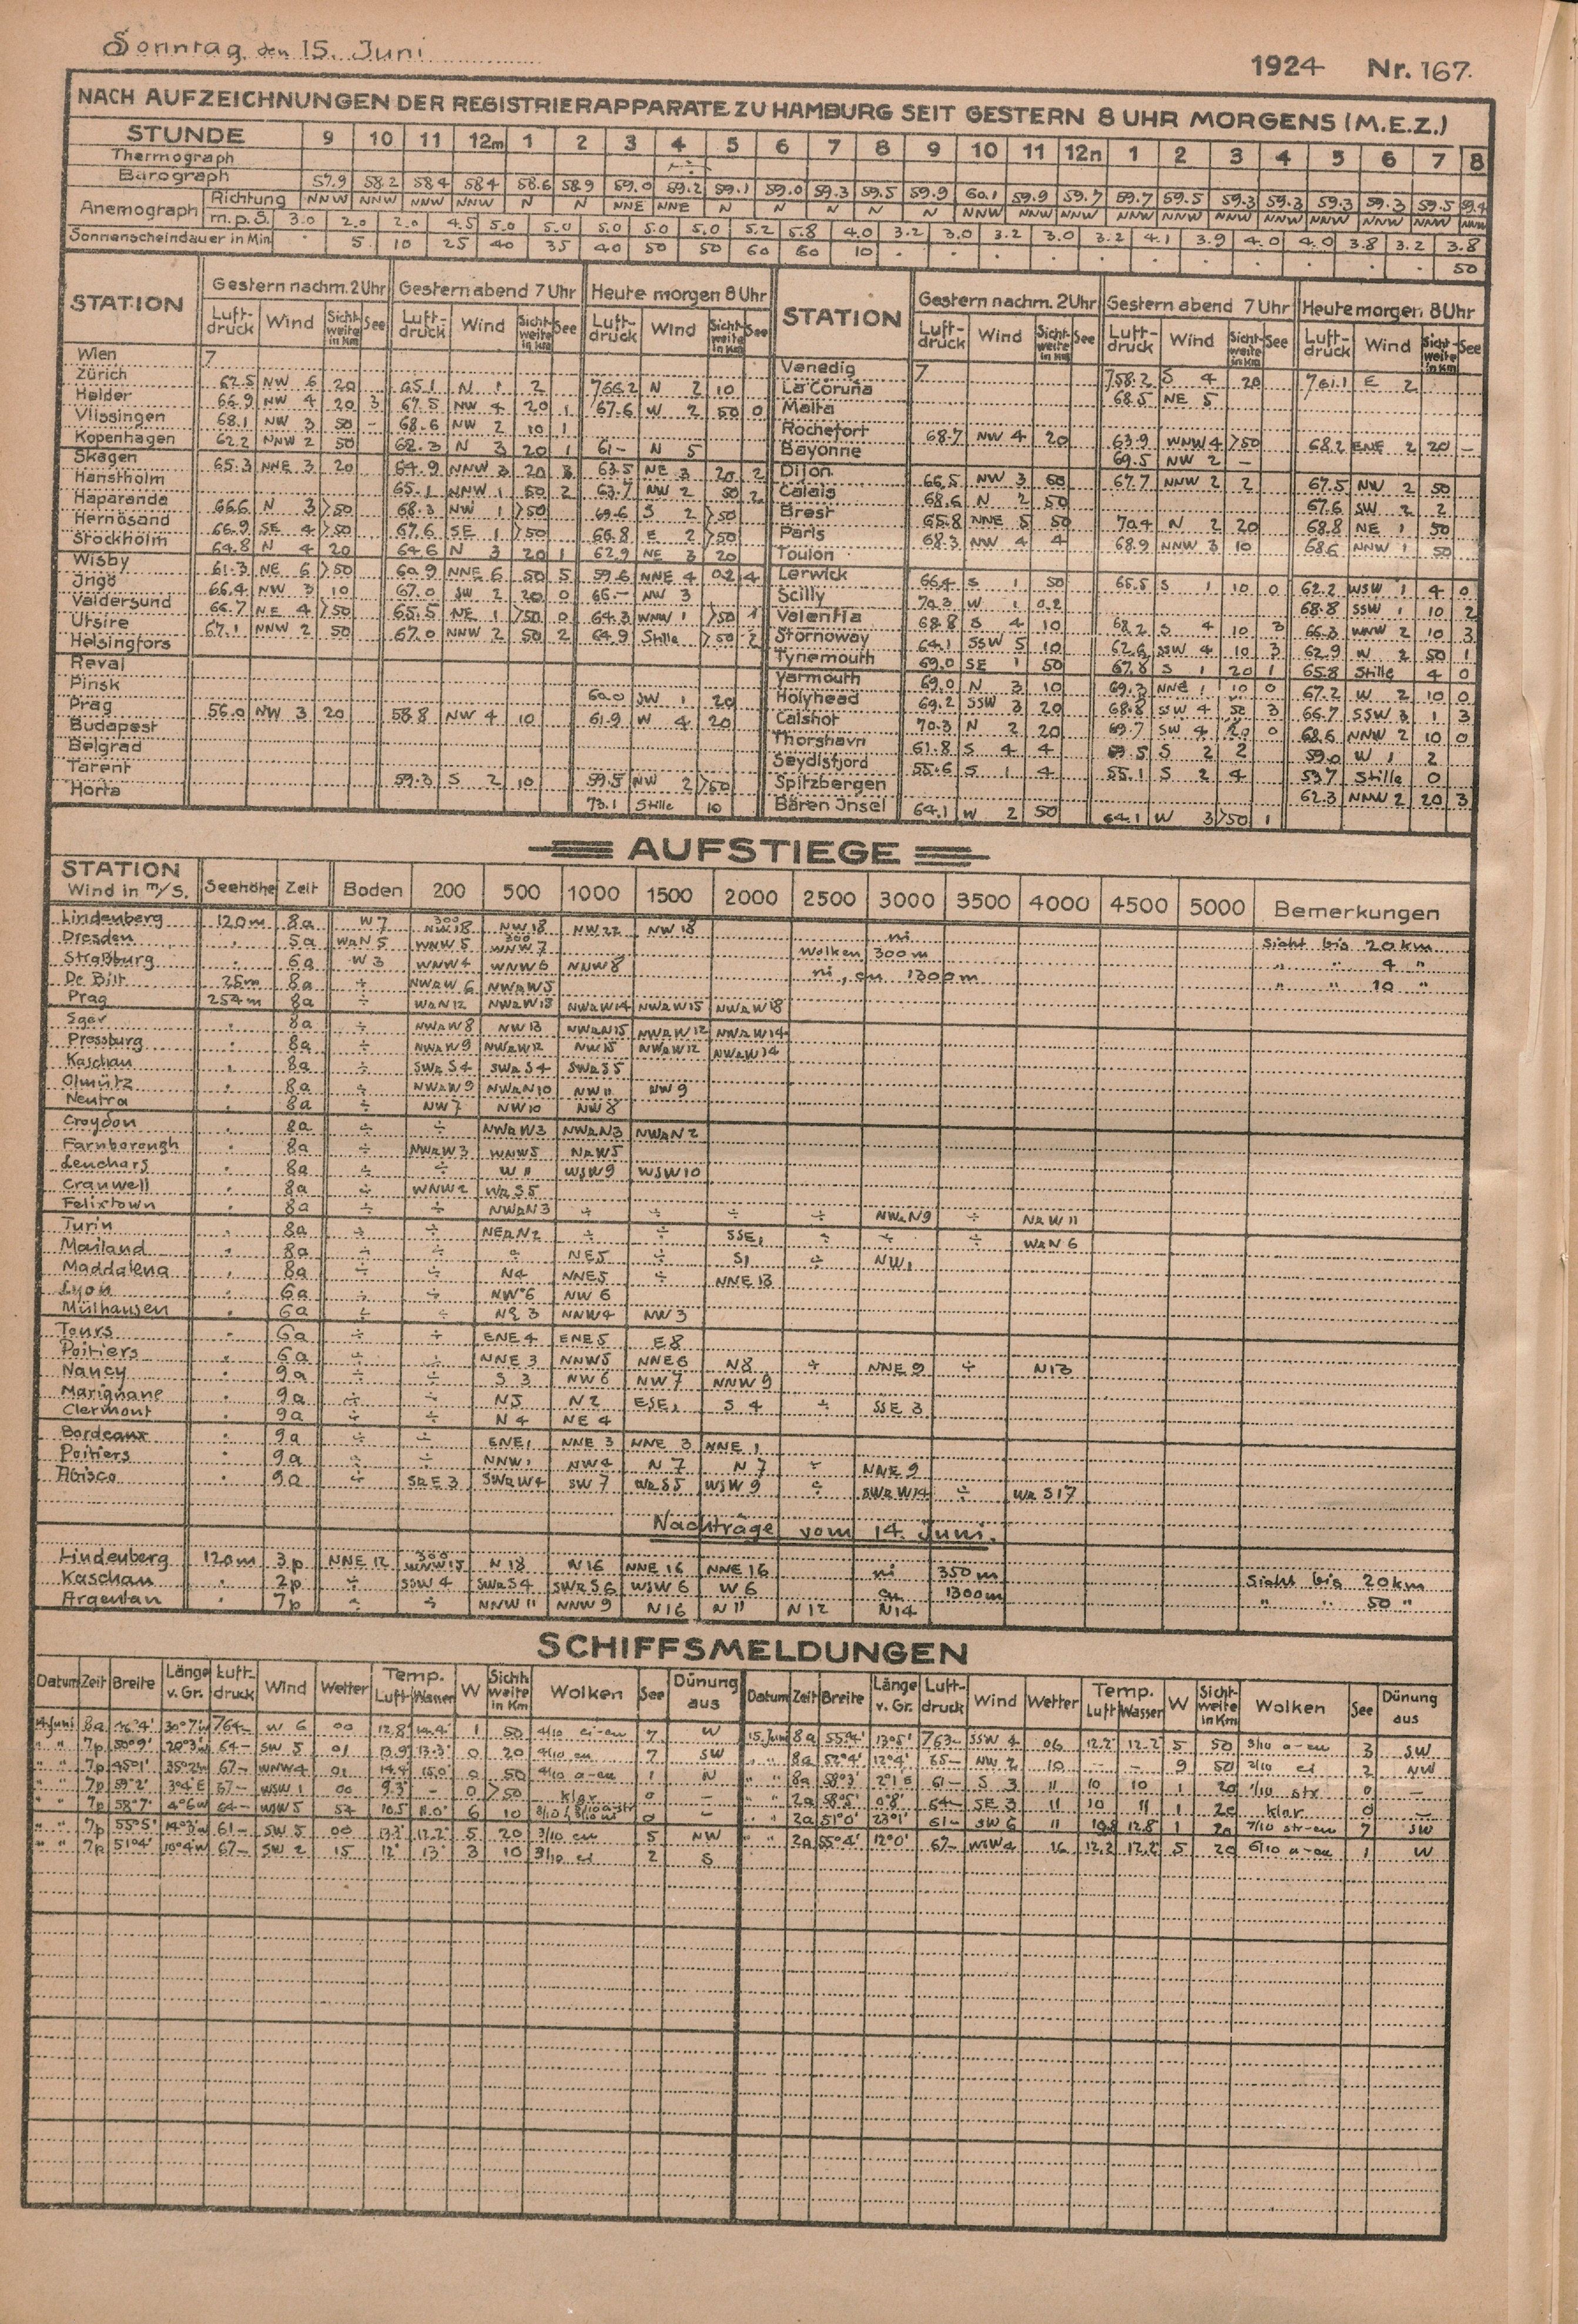 Sonntag, den 15. Juni
1924 Nr. 167.
NACH AUFZEICHNUNGEN DER REGISTRIERAPPARATE ZU HAMBURG SEIT GESTERN 8 UHR MORGENS (M.E.Z.)
STUNDE 9 10 11 12m 1 2 3 4 5 6 7 8 9 10 11 12n 1 2 3 4 5 6 7 8
Thermograph ÷
Barograph 57.9 58.2 58.4 58.4 58.6 58.9 59.0 59.2 59.1 59.0 59.3 59.5 59.9 60.1 59.9 59.7 59.7 59.5 59.3 59.3 59.3 59.3 59.5 59.4
Anemograph Richtung NNW NNW NNW NNW N N NNE NNE N N N N N NNW NNW NNW NNW NNW NNW NNW NNW NNW NNW NNW
m.p.S. 3.0 2.0 2.0 4.5 5.0 5.0 5.0 5.0 5.0 5.2 5.8 4.0 3.2 3.0 3.2 3.0 3.2 4.1 3.9 4.0 4.0 3.8 3.2 3.8
Sonnenscheindauer in Min . 5 10 25 40 35 40 50 50 60 60 10 . . . . . . . . . . . 50
STATION Gestern nachm. 2 Uhr Gestern abend 7 Uhr Heute morgen 8 Uhr STATION Gestern nachm. 2 Uhr Gestern abend 7 Uhr Heute morgen 8 Uhr
Luftdruck Wind Sichtweite in Km See Luftdruck Wind Sichtweite in Km See Luftdruck Wind Sichtweite in Km See Luftdruck Wind Sichtweite in Km See Luftdruck Wind Sichtweite in Km See Luftdruck Wind Sichtweite in Km See
Wien 7
Zürich 62.5 NW 6 20 65.1 N 1 2 766.2 N 2 10
Helder 66.9 NW 4 20 3 67.5 NW 4 20 1 67.6 W 2 50 0
Vlissingen 68.1 NW 3 50 - 68.6 NW 2 10 1
Kopenhagen 62.2 NNW 2 50 62.3 N 3 20 1 61- N 5
Skagen 65.3 NNE 3 20 64.9 NNW 3 20 3 63.5 NE 3 20 2
Hanstholm 65.1 NNW 1 50 2 63.7 NW 2 50 2
Haparanda 66.6 N 3 >50 68.3 NW 1 >50 69.6 S 2 >50
Hernösand 66.9 SE 4 >50 67.6 SE 1 >50 66.8 E 2 >50
Stockholm 64.8 N 4 20 64.6 N 3 20 1 62.9 NE 3 20
Wisby 61.3 NE 6 >50 60.9 NNE 6 50 5 59.6 NNE 4 0.2 4
Jngö 66.4 NW 3 10 67.0 SW 2 20 0 66.- NW 3
Valdersund 66.7 NE 4 >50 65.5 NE 1 >50 0 64.3 WNW 1 >50 1
Utsire 67.1 NNW 2 50 67.0 NNW 2 50 2 64.9 Stille >50 2
Helsingfors
Reval
Pinsk 60.0 SW 1 20
Prag 56.0 NW 3 20 58.8 NW 4 10 61.9 W 4 20
Budapest
Belgrad
Tarent 59.3 S 2 10 59.5 NW 2 >50
Horta 73.1 Stille 10
Venedig 7 758.2 S 4 20 761.1 E 2
La Coruña 68.5 NE 5
Malta
Rochefort 68.7 NW 4 20 63.9 WNW 4 >50 68.2 ENE 2 20 -
Bayonne 69.5 NW 2 -
Dijon 66.5 NW 3 50 67.7 NNW 2 2 67.5 NW 2 50
Calais 68.6 N 2 50 67.6 SW 2 2
Brest 65.8 NNE 5 50 70.4 N 2 20 68.8 NE 1 50
Paris 68.3 NW 4 4 68.9 NNW 3 10 68.6 NNW 1 50
Toulon
Lerwick 66.4 S 1 50 65.5 S 1 10 0 62.2 WSW 1 4 0
Scilly 70.3 W 1 0.2 68.8 SSW 1 10 2
Valentia 68.8 S 4 10 68.2 S 4 10 3 66.3 WNW 2 10 3
Stornoway 64.1 SSW 5 10 62.6 SSW 4 10 3 62.9 W 2 50 1
Tynemouth 69.0 SE 1 50 67.8 S 1 20 1 65.8 Stille 4 0
Yarmouth 69.0 N 3 10 69.3 NNE 1 10 0 67.2 W 2 10 0
Holyhead 69.2 SSW 3 20 68.8 SW 4 50 3 66.7 SSW 3 1 3
Calshot 70.3 N 2 20 69.7 SW 4 20 0 68.6 NNW 2 10 0
Thorshavn 61.8 S 4 4 59.5 S 2 2 59.0 W 1 2
Seydisfjord 55.6 S 1 4 55.1 S 2 4 53.7 Stille 0
Spitzbergen 62.3 NNW 2 20 3
Bären Jnsel 64.1 W 2 50 64.1 W 3 >50 1
AUFSTIEGE
STATION Wind in m/S. Seehöhe Zeit Boden 200 500 1000 1500 2000 2500 3000 3500 4000 4500 5000 Bemerkungen
Lindenberg 120m 8a W 7 300 NW 18 NW 18 NW 22 NW 18 ni Sicht bis 20 km
Dresden . 5a WzN 5 WNW 5 300 WNW 7 Wolken 300 m " " 4 "
Straßburg . 6a W 3 WNW 4 WNW 6 NNW 8 ni, cu 1300 m " " 10 "
De Bilt 25m 8a ÷ NWzW 6 NWzW 5
Prag 254m 8a ÷ WzN 12 NWzW 13 NWzW 14 NWzW 15 NWzW 18
Eger . 8a ÷ NWzW 8 NW 13 NWzN 15 NWzW 12 NWzW 14
Pressburg . 8a ÷ NWzW 9 NWzW 12 NW 15 NWzW 12 NWzW 14
Kaschau . 8a ÷ SWzS 4 SWzS 4 SWzS 5
Olmütz . 8a ÷ NWzW 9 NWzN 10 NW 11 NW 9
Neutra . 8a ÷ NW 7 NW 10 NW 8
Croydon 8a ÷ ÷ NWzW 3 NWzN 3 NWzN 2
Farnborough . 8a ÷ NWzW 3 WNW 5 NzW 5
Leuchars . 8a ÷ ÷ W 11 WSW 9 WSW 10
Cranwell . 8a ÷ WNW 2 WzS 5
Felixtown . 8a ÷ ÷ NWzN 3 ÷ ÷ ÷ ÷ NWzN 9 ÷ NzW 11
Turin . 8a ÷ ÷ NEzN 2 ÷ ÷ SSE 1 ÷ ÷ ÷ WzN 6
Mailand . 8a ÷ ÷ ÷ NE 5 ÷ S 1 ÷ NW 1
Maddalena . 8a ÷ ÷ N 4 NNE 5 ÷ NNE 13
Lyon . 6a ÷ ÷ NW 6 NW 6
Mülhausen . 6a ÷ ÷ NE 3 NNW 4 NW 3
Tours . 6a ÷ ÷ ENE 4 ENE 5 E 8
Poitiers . 6a ÷ ÷ NNE 3 NNW 5 NNE 6 N 8 ÷ NNE 9 ÷ N 13
Nancy . 9a ÷ ÷ S 3 NW 6 NW 7 NNW 9
Marignane . 9a ÷ ÷ N 5 N 2 ESE 1 S 4 ÷ SSE 3
Clermont . 9a ÷ ÷ N 4 NE 4
Bordeaux . 9a ÷ ÷ ENE 1 NNE 3 NNE 3 NNE 1
Poitiers . 9a ÷ ÷ NNW 1 NW 4 N 7 N 7 ÷ NNE 9
Abisco . 9a ÷ SzE 3 SWzW 4 SW 7 WzS 5 WSW 9 ÷ SWzW 14 ÷ WzS 17
Nachträge vom 14. Juni.
Lindenberg 120m 3p NNE 12 300 WNW 15 N 18 N 16 NNE 16 NNE 16 ni 350 m Sicht bis 20 km
Kaschau . 2p ÷ SSW 4 SWzS 4 SWzS 6 WSW 6 W 6 cu 1300 m " " 50 "
Argentan . 7p ÷ ÷ NNW 11 NNW 9 N 16 N 11 N 12 N 14
SCHIFFSMELDUNGEN
Datum Zeit Breite Länge v. Gr. Luftdruck Wind Wetter Temp. Luft Wasser W Sichtweite in Km Wolken See Dünung aus Datum Zeit Breite Länge v. Gr. Luftdruck Wind Wetter Temp. Luft Wasser W Sichtweite in Km Wolken See Dünung aus
14. Juni 8a 30°7'W 764- W 6 00 12.8 1 50 4/10 ci-cu 7 W 15. Juni 8a 55°4' 13°5' 763- SSW 4 06 12.2 12.2 5 50 3/10 a-cu 3 SW
" " 7p 50°9' 20°3'W 64- SW 5 01 13.9 13.3 0 20 4/10 cu 7 SW " " 8a 52°4' 12°4' 65- NW 2 10 - - 9 50 2/10 ci 2 NW
" " 7p 45°1' 35°2'W 67- WNW 4 01 14.4 15.0 0 50 4/10 a-cu 1 N " " 8a 58°3' 2°1'E 61- S 3 11 10 10 1 20 1/10 str 0 -
" " 7p 59°2' 3°4'E 67- WSW 1 00 9.3 - 0 >50 klar 0 - " " 2a 58°5' 0°8' 64- SE 3 11 10 11 1 20 klar 0 -
" " 7p 58°7' 4°6'W 64- WSW 5 10.5 11.0 6 10 0 - " " 2a 51°0' 23°1' 61- SW 6 11 10.8 12.8 1 20 7/10 str-cu 7 SW
" " 7p 55°5' 14°3'W 61- SW 5 00 13.3 12.2 5 20 3/10 cu 5 NW " " 2a 55°4' 12°0' 67- WSW 4 16 12.2 12.2 5 20 6/10 a-cu 1 W
" " 7p 51°4' 10°4'W 67- SW 2 15 12 13 3 10 3/10 ci 2 S